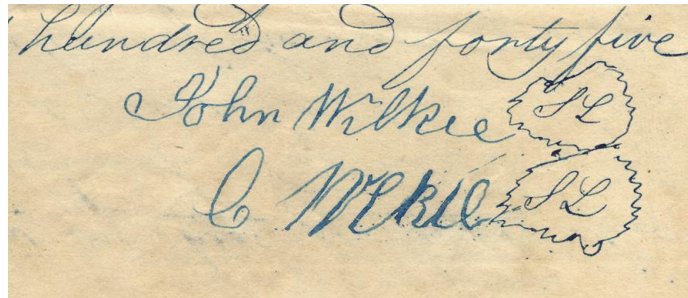 hundred and forty five
John Wilkee S L
C S L